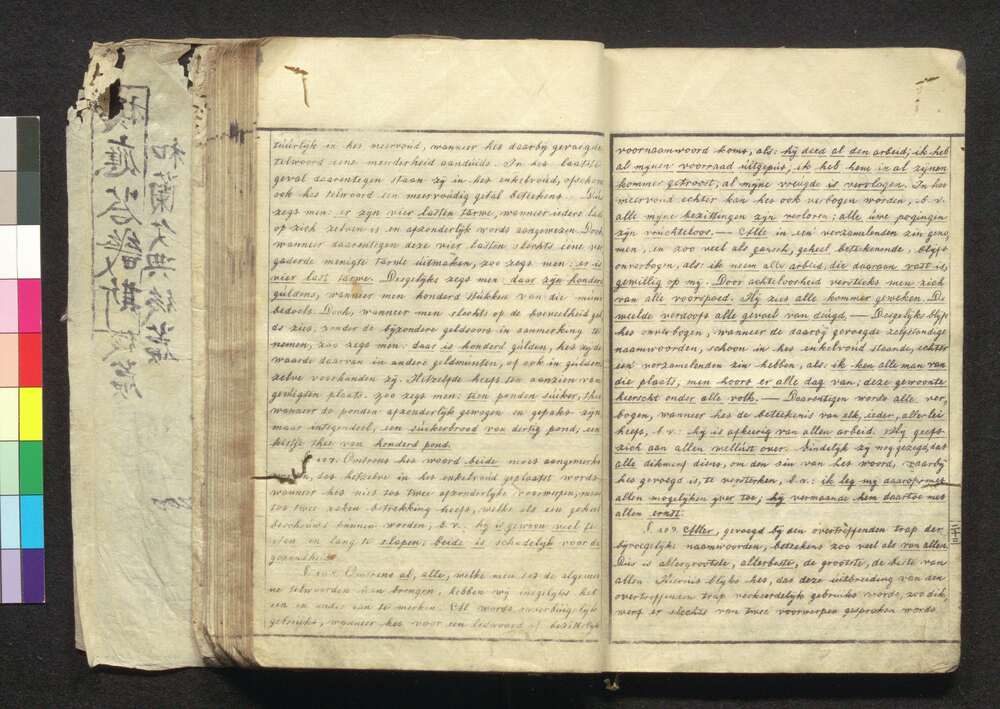 tuurlijk in het meervoud, wanneer het daarby gevoegde
telwoord eene menderheid aanduidt. In het laatste
geval daarentegen staan zy in het enkelvoud, ofschoon
ook het telwoord een meervoudig getal beteekent. Dus
zegt men: er zyn vier lasten tarwe, wanneer ieders last
op zich zelven is en afzonderlyk wordt aangewezen. Doch
wanneer daarentegen deze vier lasten slechts eene ver
gaderde menigte tarwe uitmaken, zoo zegt men: er is
vier last tarwe. Desgelyks zegt men daar zyn honderd
guldens, wanneer men honderd stukken van die munt
bedoelt. Doch wanneer men slechts op de hoeveelheid gel
ds ziet, zonder de byzondere geldsoort in aanmerking te
nemen, zoo zegt men: daar is honderd gulden, het zy de
waarde daarvan in andere geldmunten, of ook in guldens
zelve voorhanden zy. Hetzelfde heeft ten aanzien van
gewigten plaats. zoo zegt men: tien ponden suiker, thee
wanneer de ponden afzonderlyk gewogen en gepakt zyn
maar integendeel, een suikerbrood van dertig pond, een
kistje thee van honderd pond.
§ 107. Omtrent het woord beide moet aangemerkt
dat hetzelve in het enkelvoud geplaatst wordt
wanneer het niet tot twee afzonderlyke voorwerpen, maar
tot twee zaken betrekking heeft, welke als een geheel
beschouwd kunnen worden, b. v. hy is gewoon veel te
eten en lang te slapen; beide is schadelyk voor de
gezondheid
§ 108. Omtrent al, alle, welke men tot de algemee
ne telwoorden kan brengen, hebben wy insgelyks het
een en ander aan te merken. Al wordt onverbuigelyk
gebruikt, wanneer het voor een lidwoord of bezittelyk
voornaamwoord komt, als: hy deed al den arbeid; ik heb
al mynen voorraad uitgeput, ik heb hem in al zynen
kommer getroost, al myne vreugde is vervlogen. In het
meervoud echter kan het ook verbogen worden, b. v.
alle myne bezittingen zyn verloren; alle uwe pogingen
zyn vruchteloos. — Alle in een verzamelenden zin geno
men, en zoo veel als gansch, geheel beteekenende, blyft
onverbogen, als: ik neem alle arbeid, die daaraan vast is,
gewillig op my. Door achteloosheid versteekt men zich
van alle voorspoed. Hy ziet alle kommer geweken. De
weelde verdooft alle gevoel van deugd. — Desgelyks blyft
het onverbogen, wanneer de daarby gevoegde zelfstandige
naamwoorden, schoon in het enkelvoud staande, echter
een verzamelenden zin hebben, als: ik ken alle man van
die plaats, men hoort er alle dag van; deze gewoonte
heerscht onder alle volk. — Daarentegen wordt alle ver
bogen, wanneer het de beteekenis van elk, ieder, allerlei
heeft, b. v.: hy is afkeerig van allen arbeid. Hy geeft
zich aan allen wellust over. Eindelyk zy nog gezegd, dat
alle dikmeest dient, om den zin van het woord, waarby
het gevoegd is, te versterken, b. v.: ik leg my daarop met
allen mogelyken yver toe; hy vermaande hem daartoe met
allen ernst.
§ 109. Aller, gevoegd by den overtreffenden trap der
byvoegelyke naamwoorden, beteekent zoo veel als van allen
Dus is allergrootste, allerbeste, de grootste, de beste van
allen. Hieruit blykt het, dat deze uitbreiding van den
overtreffenden trap verkeerdelyk gebruikt wordt, zoo dik
werf er slechts van twee voorwerpen gesproken wordt.
和蘭文典後篇